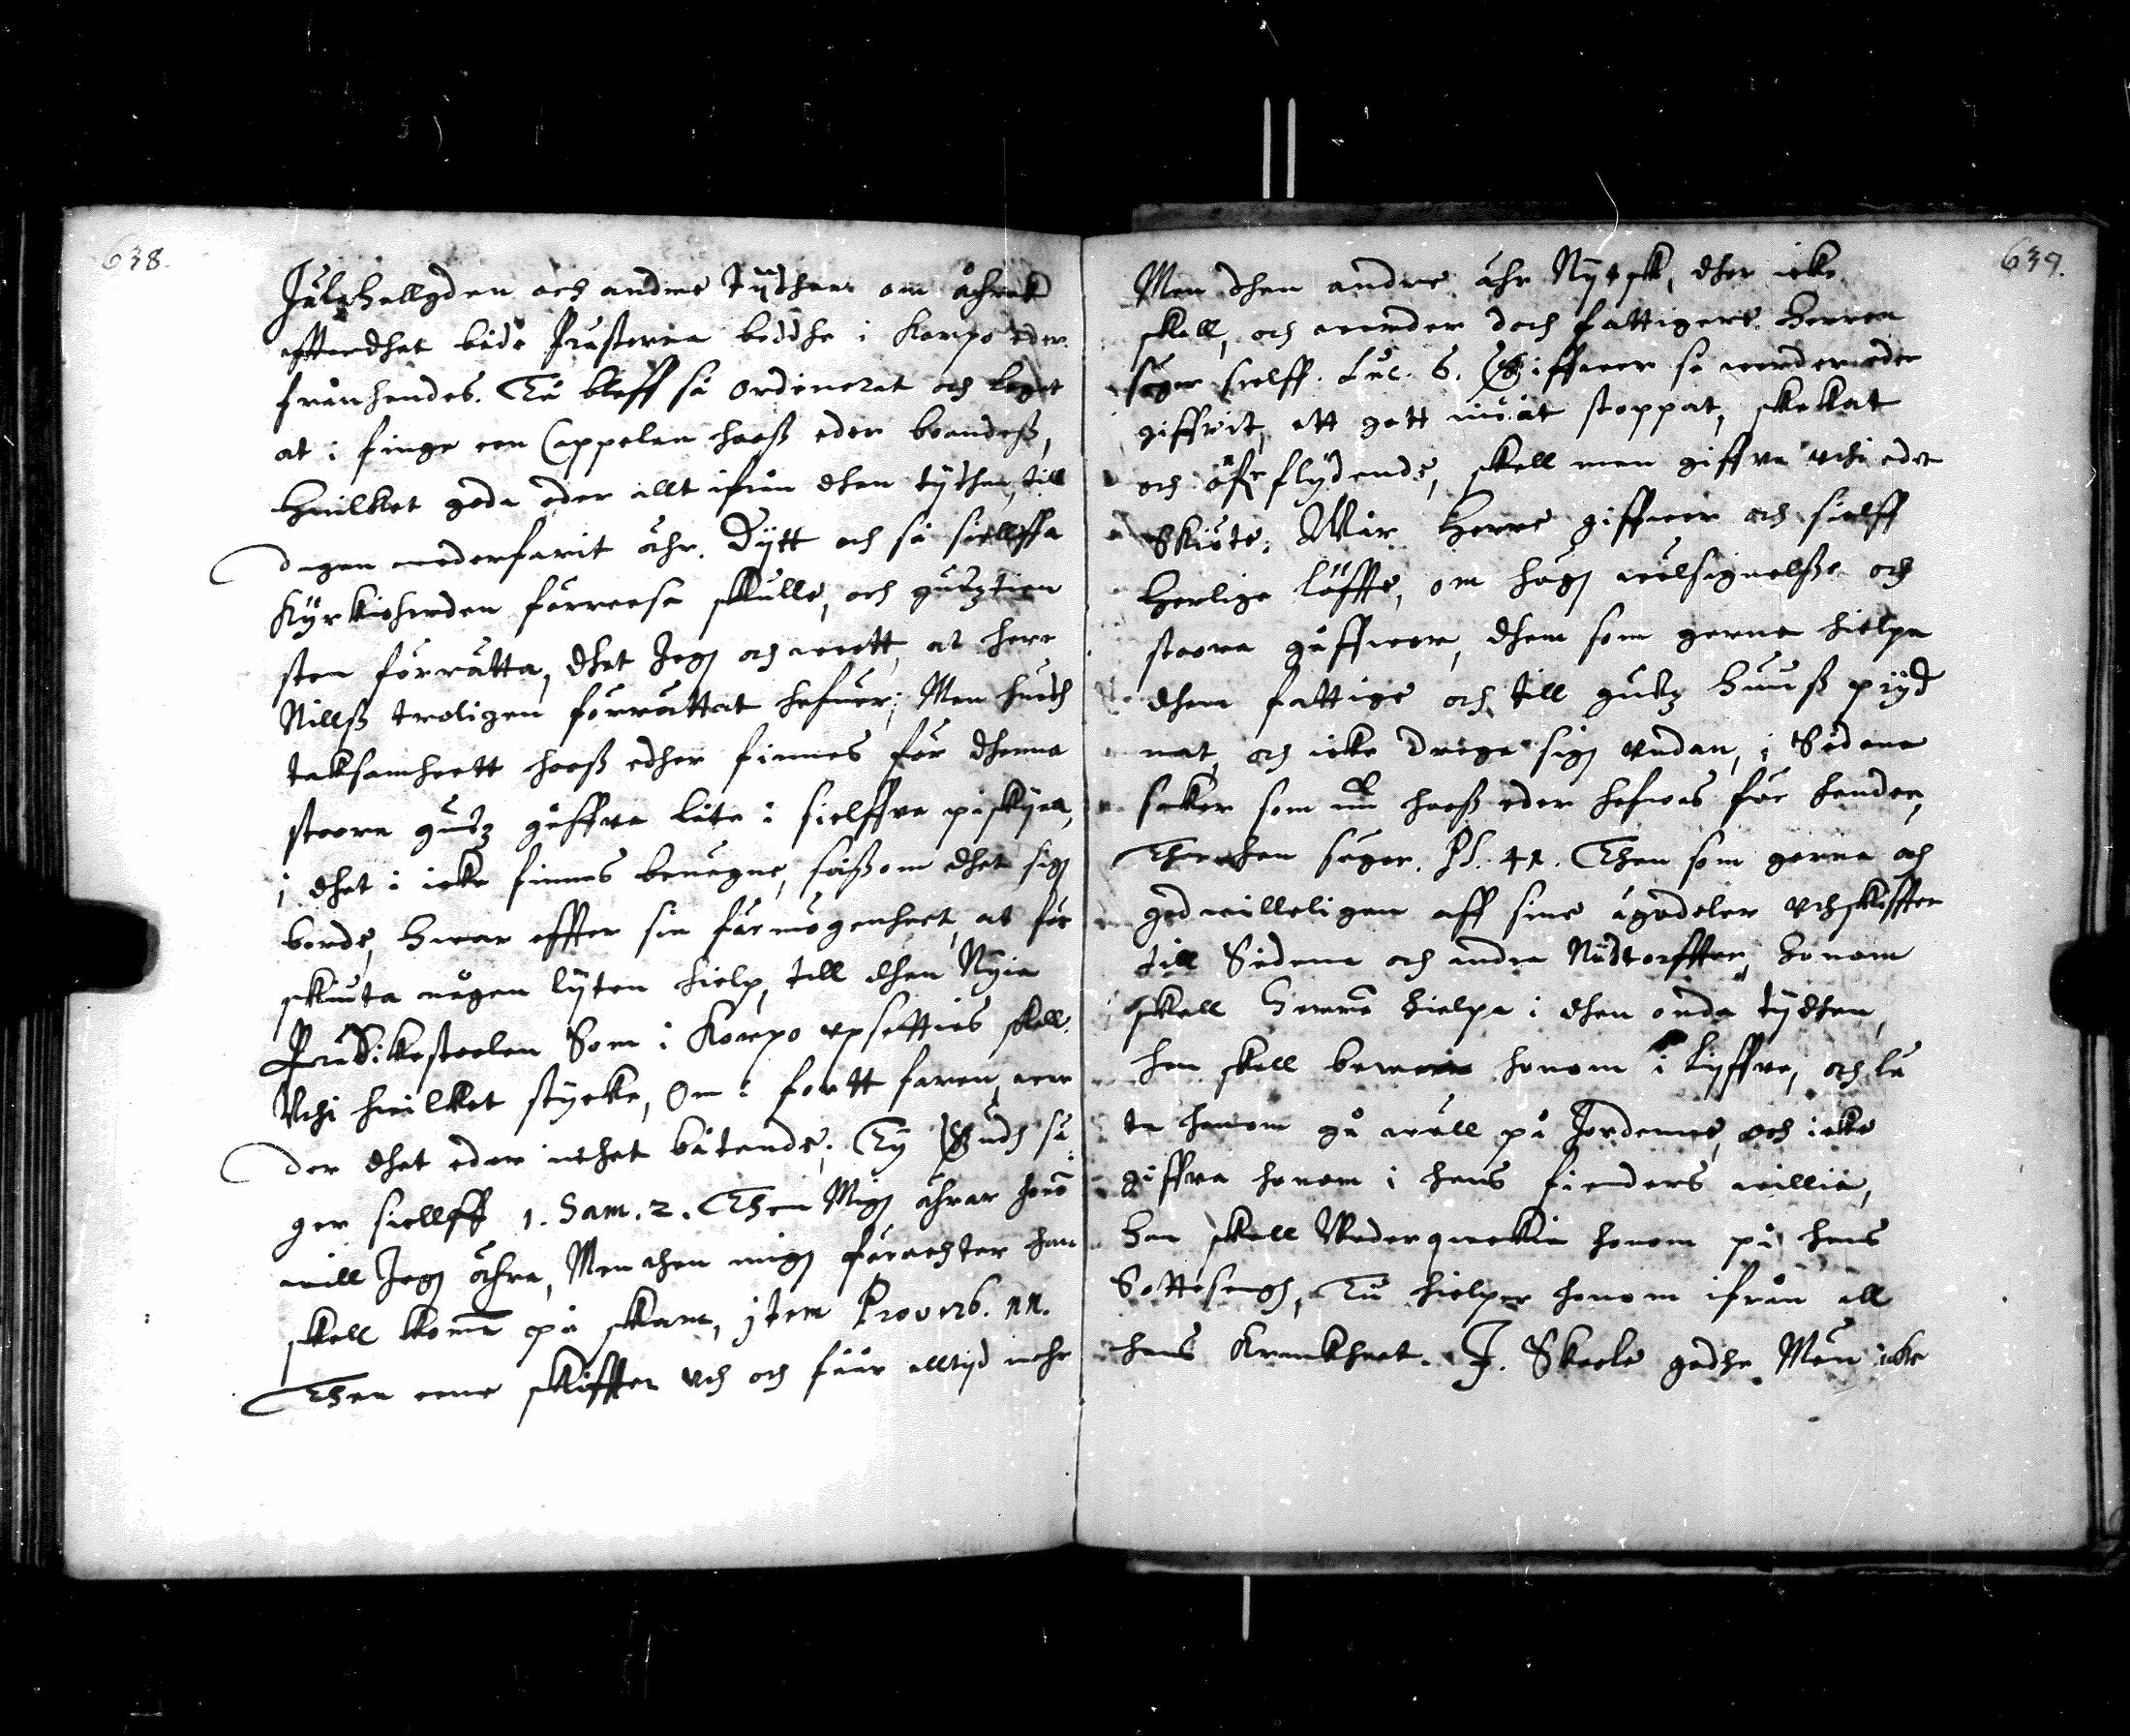 638.
Jula Hellgden och andree Tijdhenn om åhrek
efftterdhet både Prästerna bodhe i Korpo eder
frånhendes. Tå bleff så ordinerat och laget
at i finge een Cappelan hooß eder boandeß,
Huilket goda eder allt ifrån dhen tijdhen, till
dagen wederfarit åhr. Dijtt och så siellffa
Kyrkioherden förreesa skulle, och gudztien
sten förrätta, dhet Jagh och weett, at herr
Nillß troligen förrättat hafuer; Men huadh
taksamheett hooß edher finnes för dhenna
stoora gudz gåffva låte i sielffva påskijna,
i dhet i icke finnes beuägne, såßom dhet sigh
borde, Hwar effter sin förmögenheet, at för
skiuta någon lijten hielp, till dhen Nyia
Prædikestoolen Som i Korpo vpsettias skall.
Vthi huilket stycke, Om i fortt faren, wer
der dhet eder inthet båtande; Ty Gudh sä
ger siellff 1. Sam. 2. Then Migh ährar honom
will Jagh ährа, Men then migh förachter han
skall komma på skam, jtem Proverb. 11.
Then eene skiffter vth och fåår alltijd mehr
639.
Men dhen andre ähr Nijdsk, dher icke
skall, och warder doch fattigere. Herren
säger sielff. Luc. 6. Giffwer så warder eder
giffvit, ett gott mååt stoppat, skakat
och öfr flijdende, skall man giffva vthi eder
Skiöte; Wår Herre giffwer och sielff
Herlige löffte, om hugh wälsignelße och
stoora gåffwor, dhem som gerna hielpa
dhem fattige och till gudz Huuß prijd
nat, och icke draga sigh vndan, i Sådana
saker som nu hooß eder hafwes för henden,
Ther han säger. Ps. 41. Then som gerna och
godwilleligen aff sine ägodeler vthskiffter
till Sådana och andra Nådtorffter, honom
skall Herren hielpa i dhen onda tijdhen,
han skall bewara honom i Lijffve, och lå
ta honom gå wäll på Jordenne, och icke
giffva honom i hans fienders willia,
Han skall Wederqueckia honom på hans
Sottesengh, Tu hielper honom ifrån all
hans Kranckheet. J. Skoole godhe Men icke